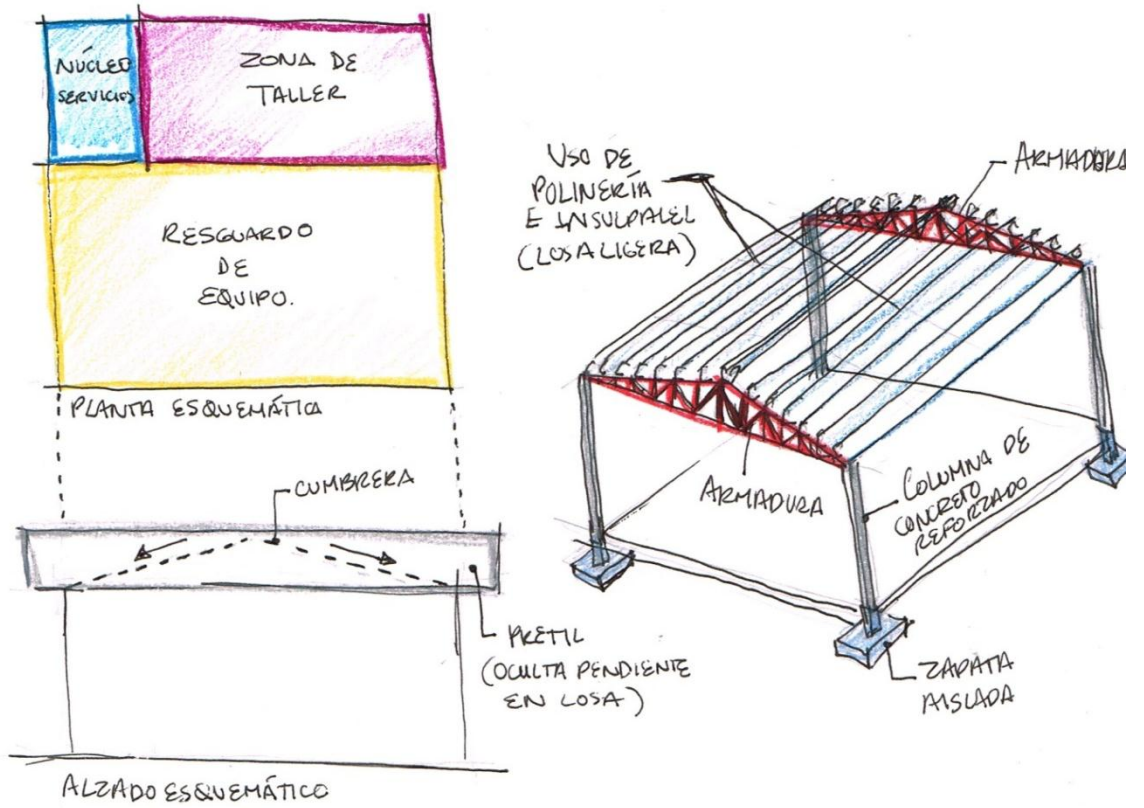 NÚCLEO
SERVICIOS
ZONA DE
TALLER
RESGUARDO
DE
EQUIPO.
PLANTA ESQUEMÁTICA
CUMBRERA
PRETIL
(OCULTA PENDIENTE
EN LOSA)
ALZADO ESQUEMÁTICO
USO DE
POLINERÍA
E INSULPALEL
(LOSA LIGERA)
ARMADURA
ARMADURA
COLUMNA DE
CONCRETO
REFORZADO
ZAPATA
AISLADA